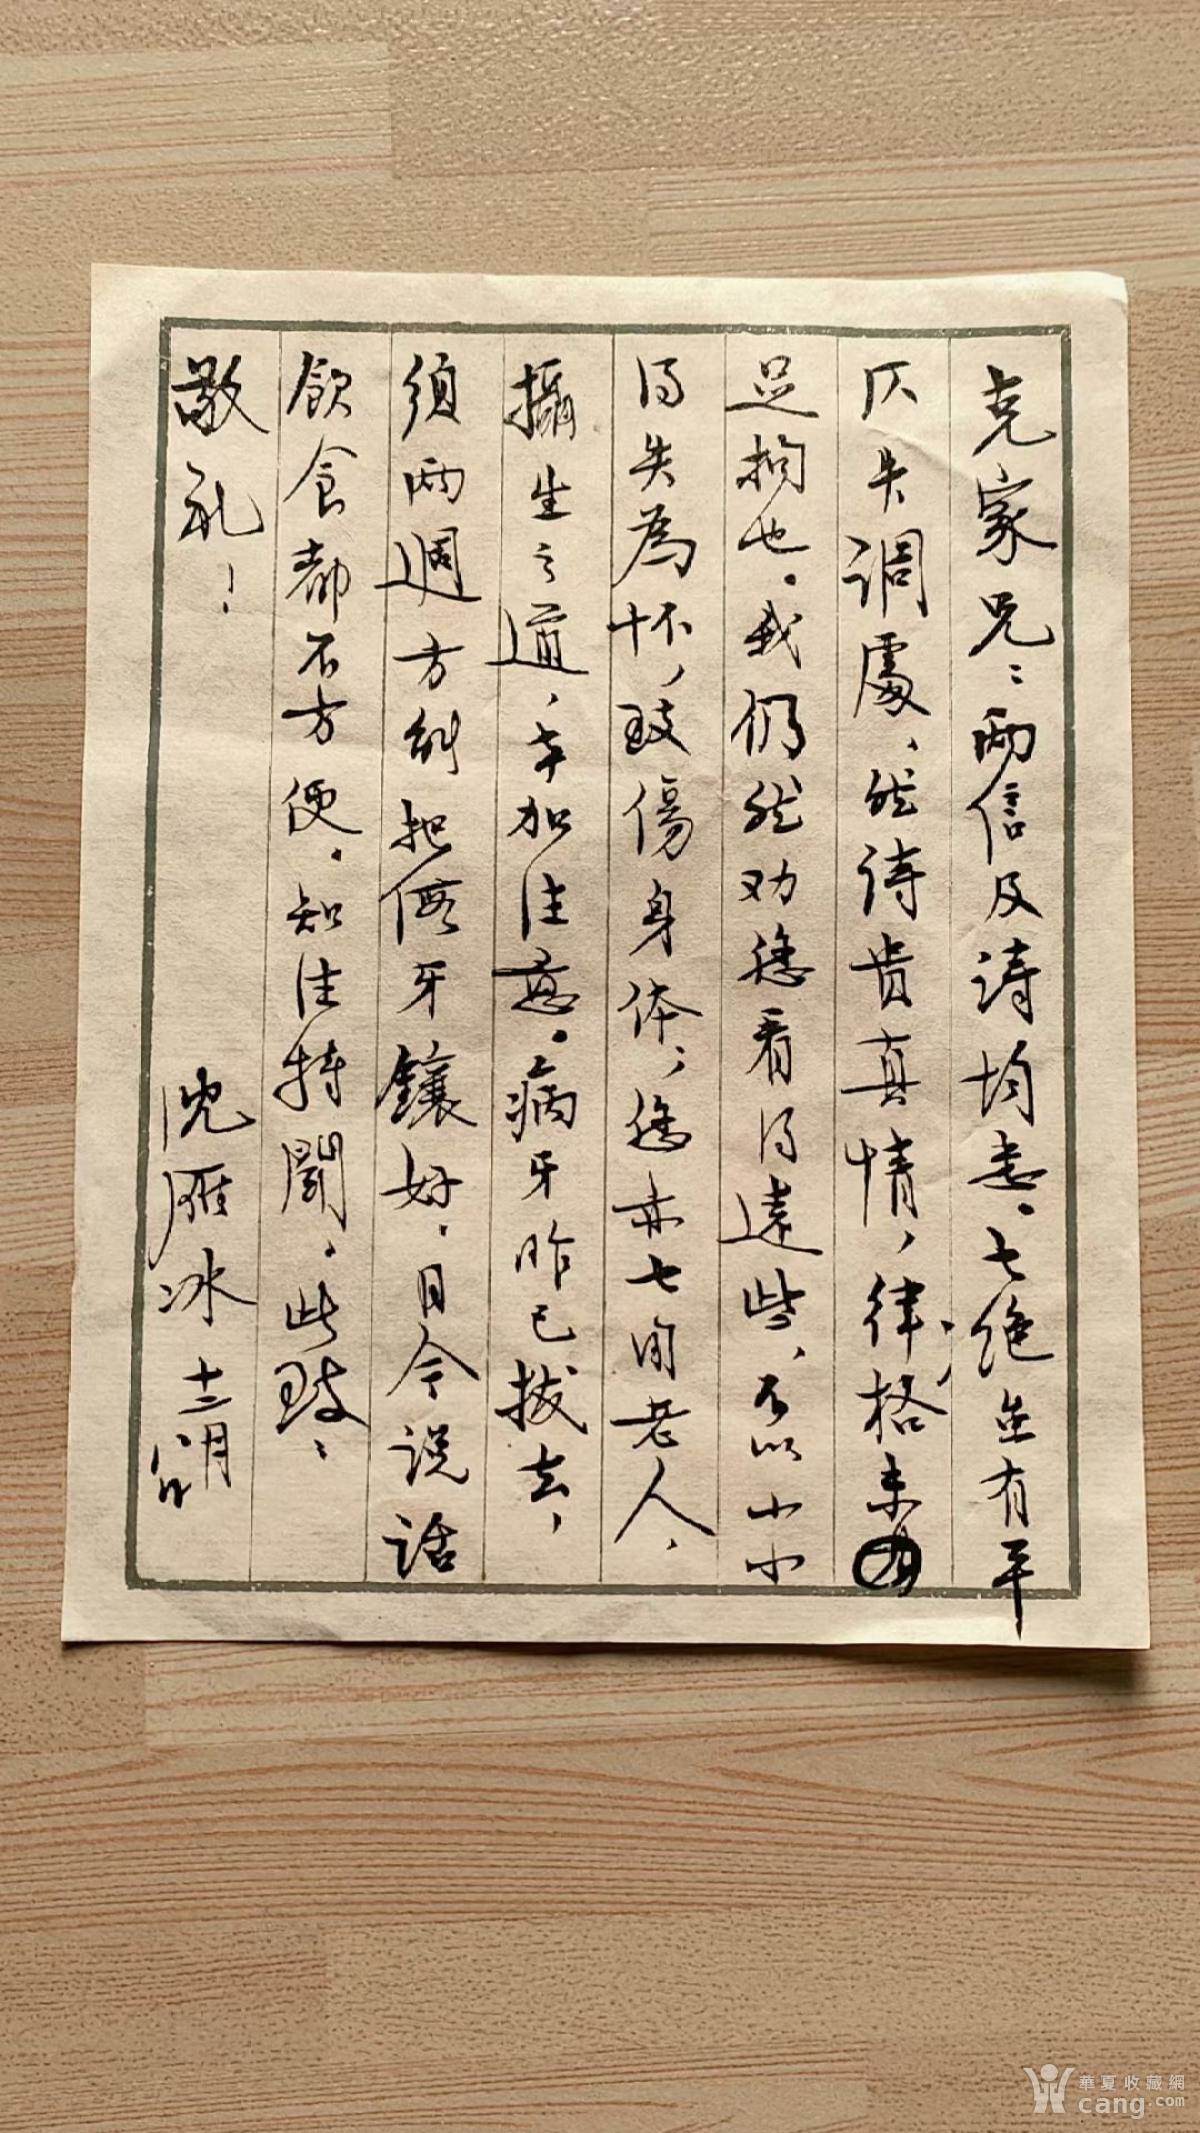 克家兄：兩信及詩均悉。七绝虽有平
仄失調處，然诗贵真情，律格未
足拘也。我仍然劝您看得遠些，不以小小
得失為怀，致傷身体，您亦七旬老人，
攝生之道，幸加注意。病牙昨已拔去，
須兩週方能把假牙鑲好，目今说话
飲食都不方便。知注特聞。此致：
敬礼！
沈雁冰 十二月
華夏收藏網
cang.com